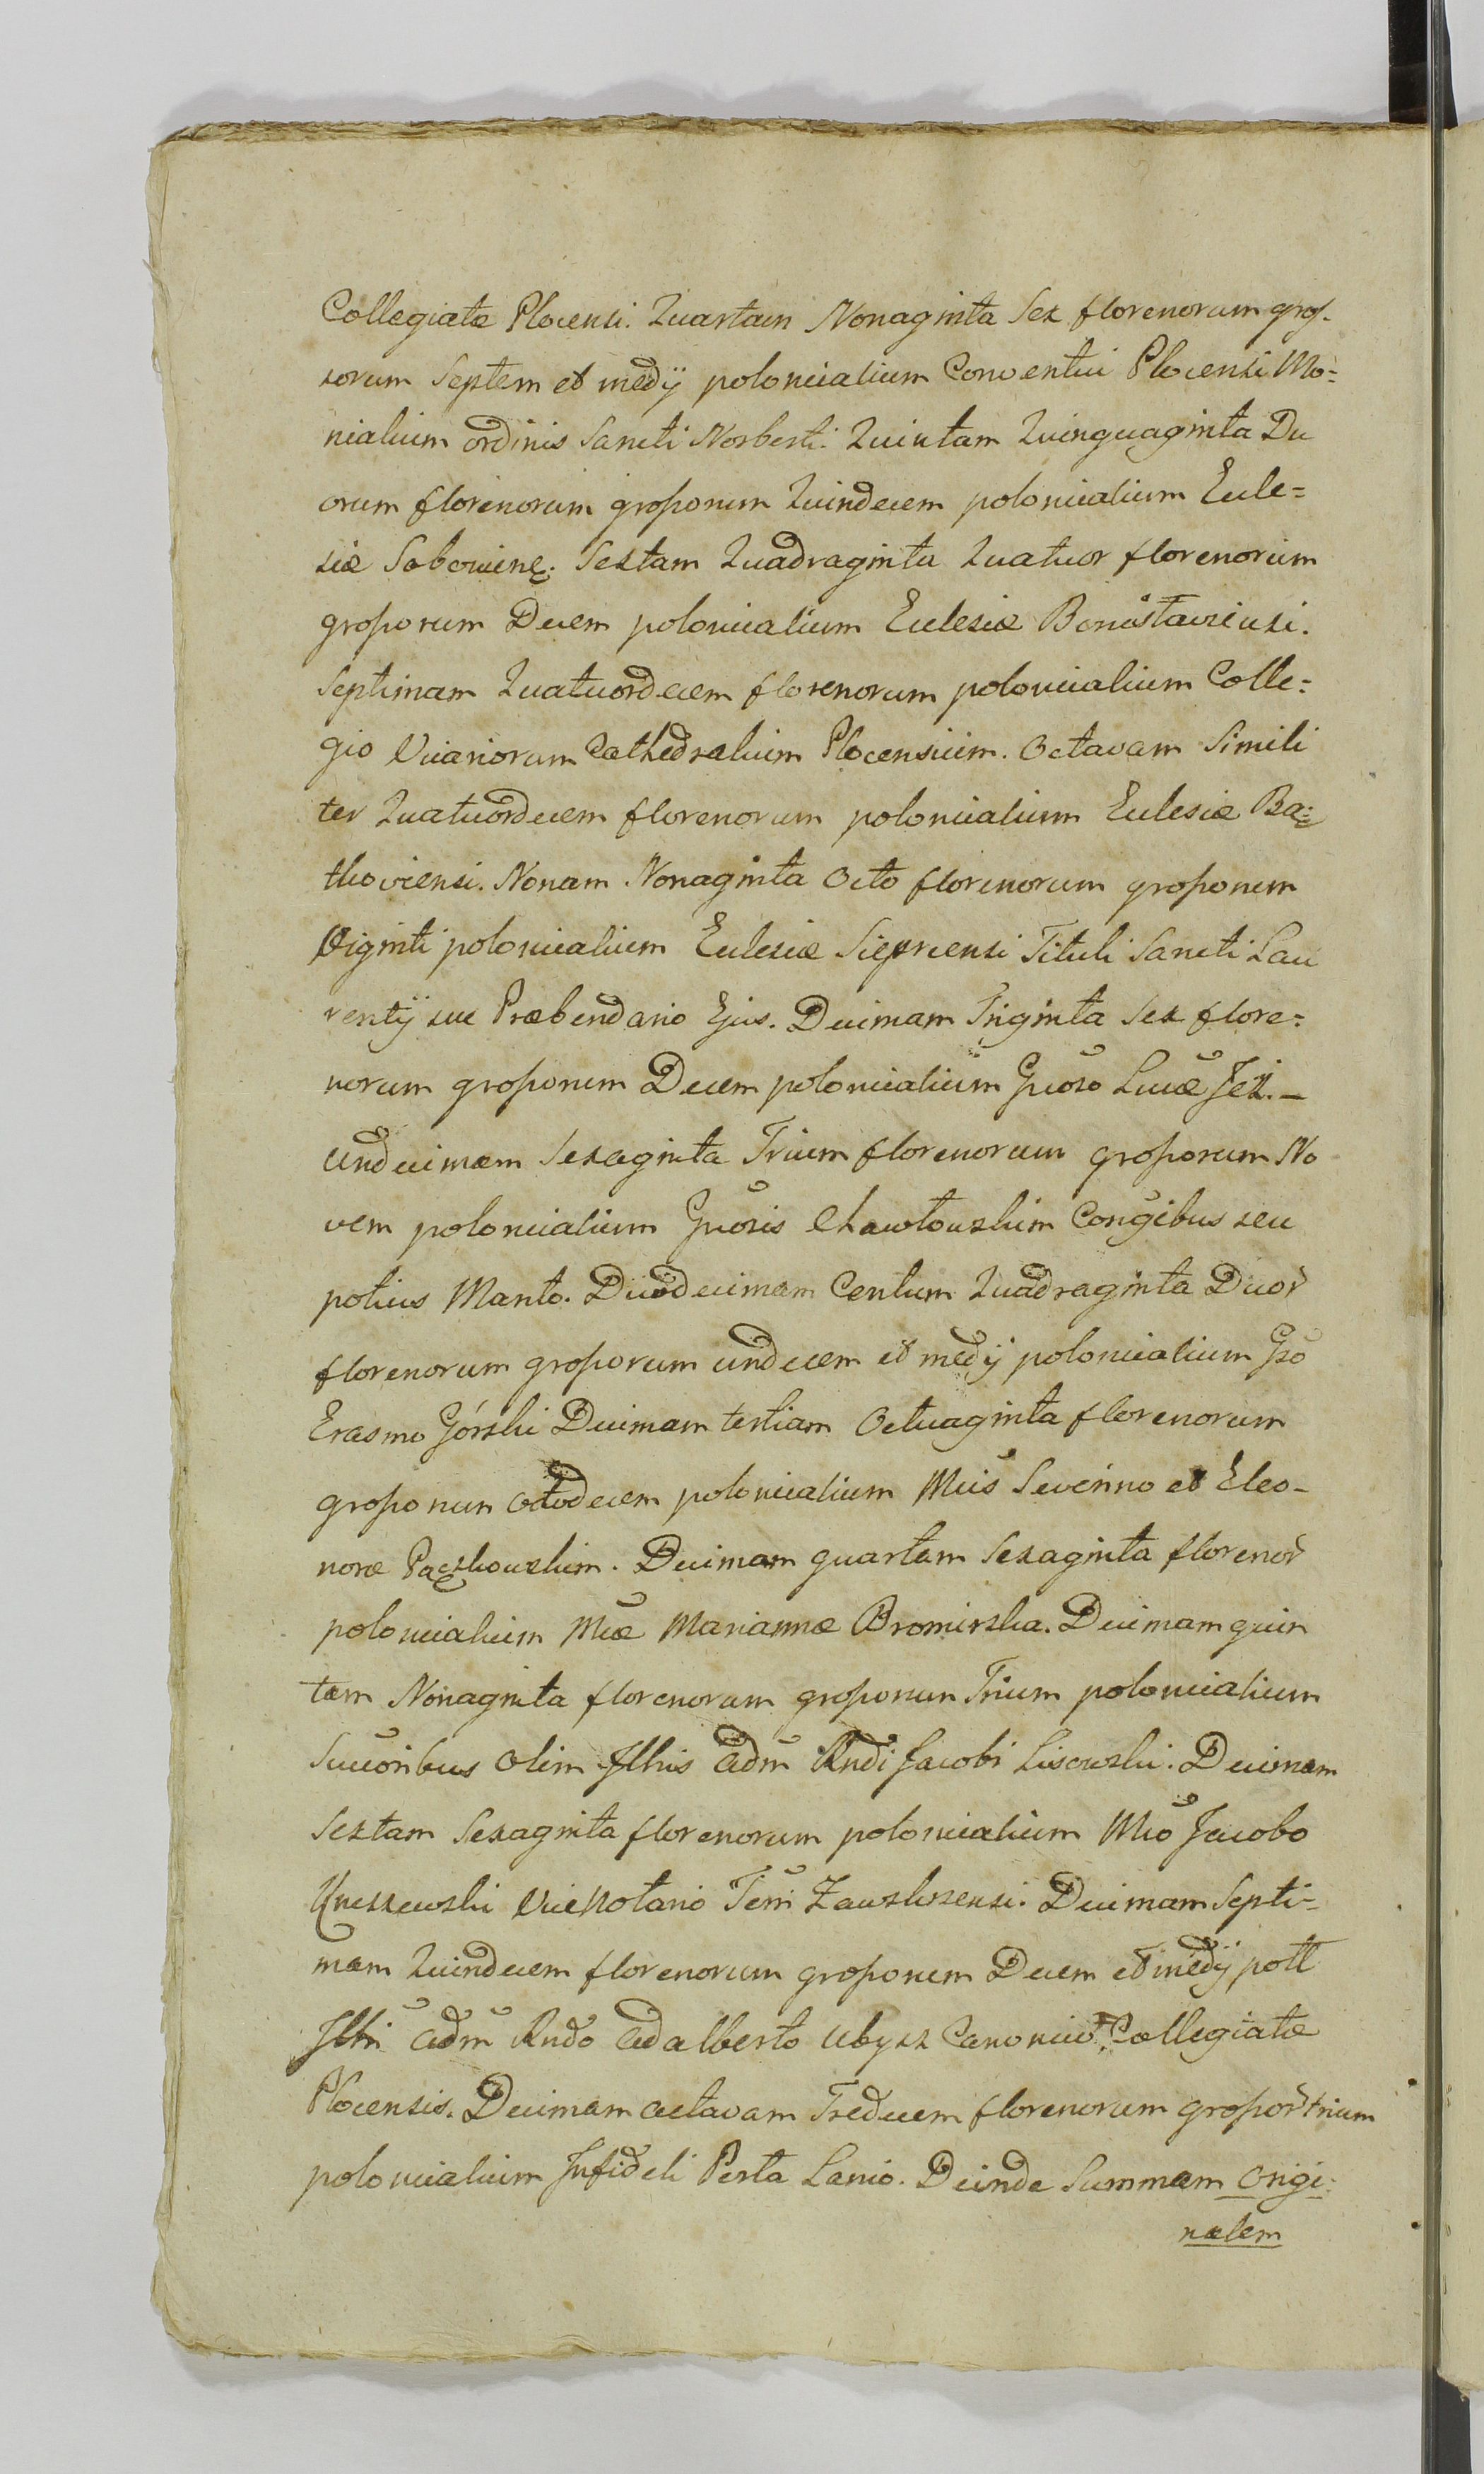 Collegiatæ Plocensi. Quartam Nonaginta Sex florenorum gros-
sorum Septem et medÿ polonicalium Conventui Plocensi Mo=
nialium ordinis Sancti Norberti. Quintam Quinquaginta Du
orum florenorum grossorum Quindecem polonicalium Eccle=
siæ Sobowinę. Sextam Quadraginta Quatuor florenorum
grossorum Decem polonicalium Ecclesiæ
Septimam Quatuordecem florenorum polonicalium Colle=
gio Vicariorum Cathedralium Plocensium. Octavam Simili
ter Quatuordecem florenorum polonicalium Ecclesiæ Bą=
thoviensi. Nonam Nonaginta Octo florenorum grossorum
Viginti polonicalium Ecclesiæ Sieprcensi Tituli Sancti Lau
rentÿ seu Præbendario Ejus. Decimam Triginta Sex flore=
norum grossorum Decem polonicalium Gnoso Lucæ Jeż. –
undecimam Sexaginta Trium florenorum grossorum No
vem polonicalium Gnosis Chawłowskim Congibus seu
potius Manto. Duodecimam Centum Quadraginta Duor
florenorum grossorum undecem et medÿ polonicalium Gso
Erasmo Górski Decimam tertiam Octuaginta florenorum
grossorum octodecem polonicalium Mcis Severino et Eleo-
noræ Pączkowskim. Decimam quartam Sexaginta florenor
polonicalium Mcæ Mariannæ Bromirska. Decimam quin
tam Nonaginta florenorum grossorum Trium polonicalium
Succoribus olim Jllris adm Rndi Jacobi Lisowski. Decimam
Sextam Sexaginta florenorum polonicalium Mco Jacobo
Kneskewski ViceNotario Terri Zawskrzensi. Decimam Septi-
mam Quindecem florenorum grossorum Decem et medÿ poll
Jllri adm Rndo Adalberto Ubysz Canonico Collegiatæ
Plocensis. Decimam octavam Tredecem florenorum grossor trium
polonicalium Infideli Perta Lanio. Deinde Summam Origi:
nalem